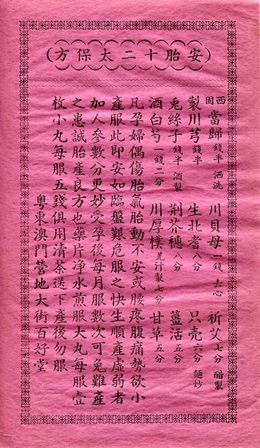 (安胎十二太保方)
西當歸錢半 酒洗 川貝母一錢 去心 祈艾七分 醋製
製川芎錢半 生北耆八分 只壳六分 麵炒
兔絲子錢半 酒製 荆芥穗八分 羗活五分
酒白芍一錢二分 川厚樸薑汁製七分 甘草五分
凡孕婦偶傷胎氣胎動不安或腰疼腹痛勢欲小
產服此即安如臨盤艱危服之快生順產虛弱者
加人參數分更妙受孕後每月服數次可免難產
之患誠胎產良方也藥片淨水煎服大丸每服壹
枚小丸每服五錢俱用清茶送下產後勿服
粵東澳門營地大街百好堂